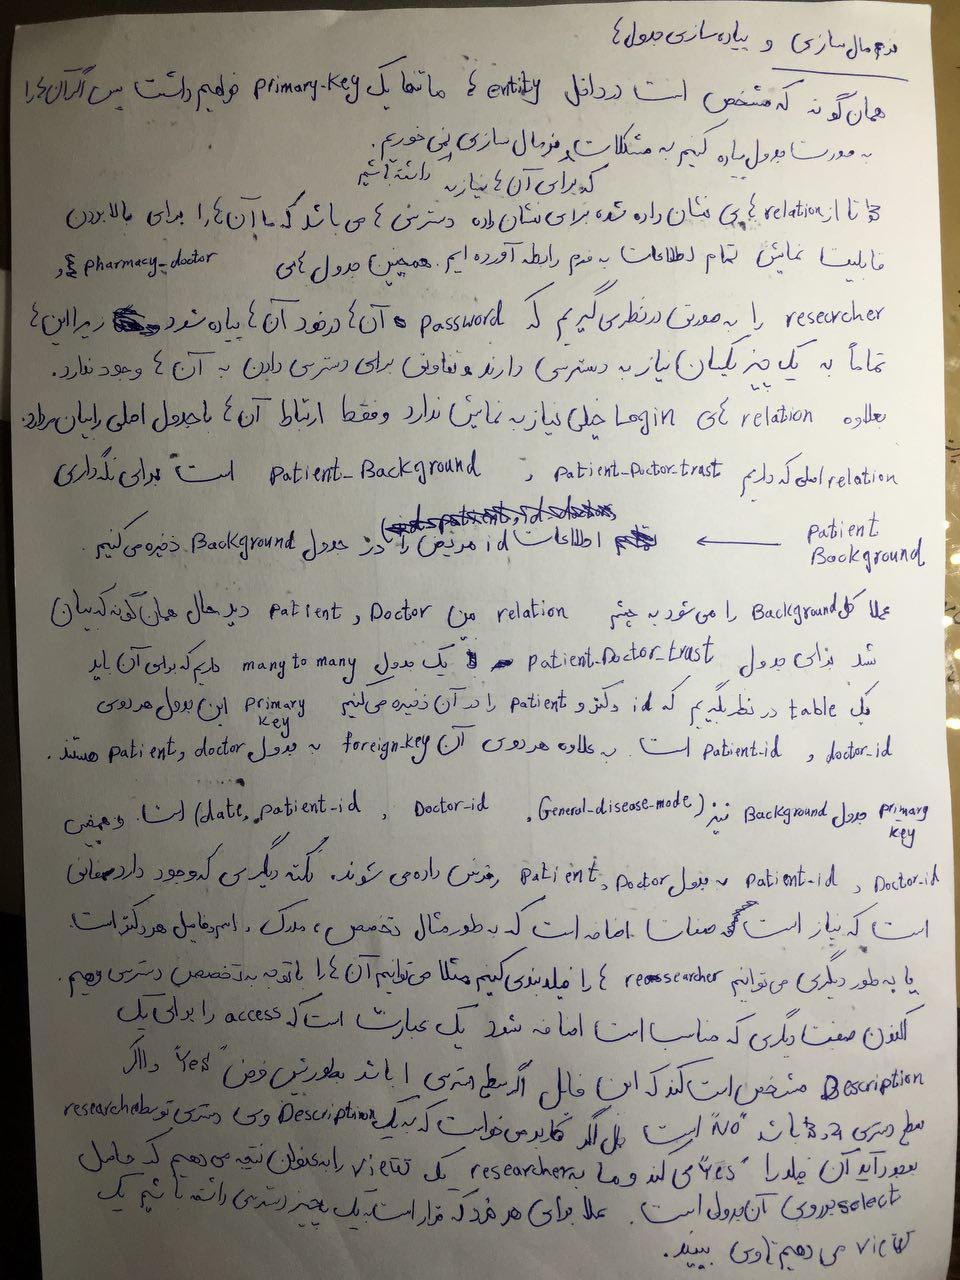 نرمال سازی و پیاده سازی جدول ها
همان گونه که مشخص است در داخل entity ها ما تنها یک primary-key خواهیم داشت پس اگر آن ها را
به صورت جدول پیاده کنیم به مشکلات نرمال سازی نمی خوریم.
که برای آن ها نیاز به داشته باشیم
تا از relation هایی نشان داده شده برای نشان داده دسترسی ها می باشد که ما آن ها را برای بالا بردن
قابلیت نمایش تمام اطلاعات به فرم رابطه آورده ایم. همچنین جدول های pharmacy-doctor و
researcher را به صورتی در نظر می گیریم که password آن ها در خود آن ها پیاده شود زیرا این ها
تماماً به یک چیز یکسان نیاز به دسترسی دارند و تفاوتی برای دسترسی دادن به آن ها وجود ندارد.
بعلاوه relation های Login خیلی نیاز به نمایش ندارد و فقط ارتباط آن ها با جدول اصلی را بیان می دارد.
relation اصلی که داریم patient-Doctor-trust و Patient_Background است برای نگه داری
Patient Background ← اطلاعات id مریض را در جدول Background ذخیره می کنیم.
عملا کل Background را می شود به چشم relation بین Doctor و patient دید حال همان گونه که بیان
شد برای جدول patient-Doctor-trust یک جدول many to many داریم که برای آن باید
یک table در نظر بگیریم که id دکتر و patient را در آن ذخیره می کنیم primary key این جدول هر دوی
doctor-id و patient-id است به علاوه هر دوی آن foreign-key به جدول doctor و patient هستند.
primary key جدول Background نیز (date, patient-id, Doctor-id, General-disease-mode) است. و همچنین
Doctor-id و patient-id به جدول Doctor و patient رفرنس داده می شوند. نکته دیگری که وجود دارد صفاتی
است که نیاز است صفات اضافه است که به طور مثال تخصص، مدرک، اسم و فامیل هر دکتر است.
یا به طور دیگری می توانیم researcher ها را فیلد بندی کنیم مثلا می توانیم آن ها را با توجه به تخصص دسترسی دهیم.
اکنون صفت دیگری که مناسب است اضافه شود یک عبارت است که access را برای یک
Description مشخص است کند که این فایل اگر سطح دسترسی 1 باشد بطور پیش فرض "Yes" و اگر
سطح دسترسی 2 و 3 باشد "No" است حال اگر کاربر می خواست که به یک Description وی دسترسی توسط researcher
بوجود آید آن فیلد را "Yes" می کند و ما به researcher یک view را به عنوان نتیجه می دهیم که حاصل
select بر روی آن جدول است. عملا برای هر فرد که قرار است به یک چیز دسترسی داشته باشیم یک
view می دهیم تا وی ببیند.